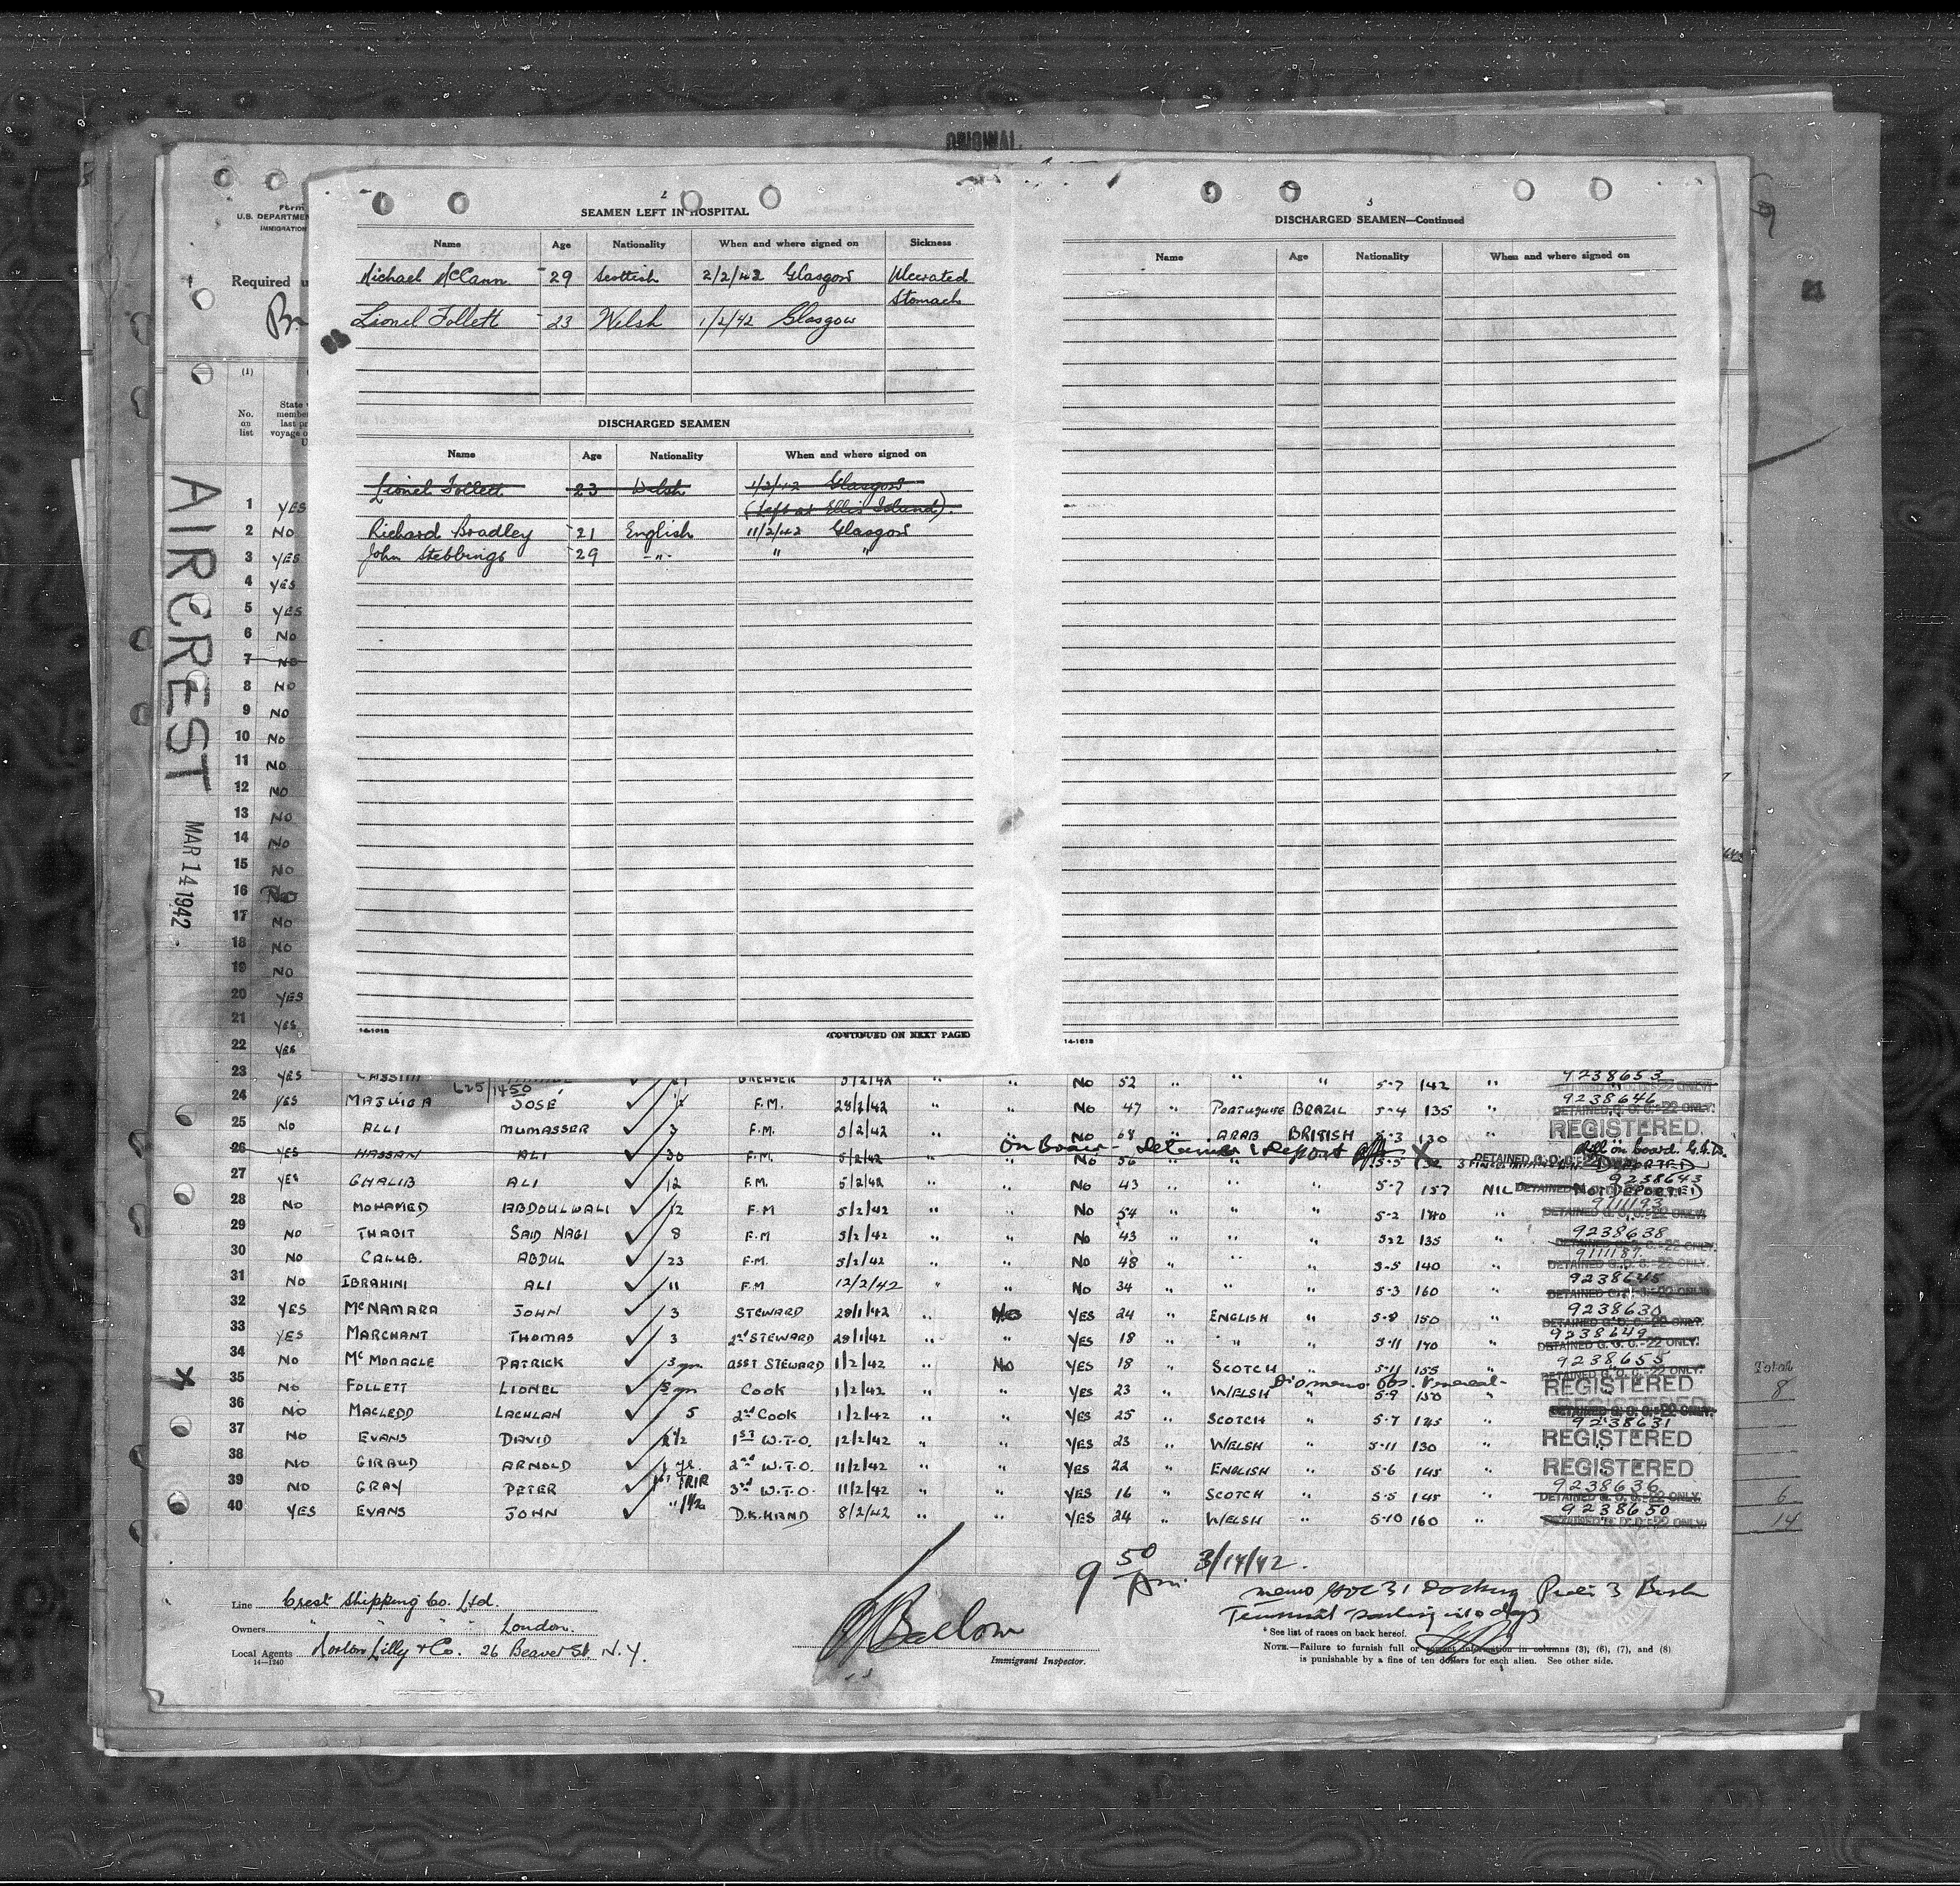 ORIGINAL
Form
U.S. DEPARTMENT
IMMIGRATION
Required
(1)
No. on list
State
member
last
voyage
AIRCREST MAR 14 1942.
2
SEAMEN LEFT IN HOSPITAL
Name Age Nationality When and where signed on Sickness
Michael McCann 29 Scottish 2/2/42 Glasgow Ulcerated
Stomach
Lionel Follett 23 Welsh 1/2/42 Glasgow
DISCHARGED SEAMEN
Name Age Nationality When and where signed on
Lionel Follett 23 Welsh 1/2/42 Glasgow
(Left at Ellis Island).
Richard Bradley 21 English 11/2/42 Glasgow
John Stebbings 29 -"- " "
14-1618 (CONTINUED ON NEXT PAGE)
3
DISCHARGED SEAMEN—Continued
Name Age Nationality When and where signed on
14-1618
1 YES
2 NO
3 YES
4 YES
5 YES
6 NO
7 NO
8 NO
9 NO
10 NO
11 NO
12 NO
13 NO
14 NO
15 NO
16 NO
17 NO
18 NO
19 NO
20 YES
21 YES
22 YES
23 YES CASSIM 5/2/42 " " NO 52 " " " 5-7 142 " 9238653
625/1450
24 YES JOSÉ F.M. 28/1/42 " " NO 47 " PORTUGUESE BRAZIL 5-4 135 " 9238646
DETAINED G. O. C.-22 ONLY.
25 NO ALLI MUMASSER 3 F.M. 5/2/42 " " NO 68 " ARAB BRITISH 5-3 130 " REGISTERED
On Board - Detained & Report
26 YES HASSAN ALI 30 F.M. 5/2/42 " " NO 56 " " " 5-5 X DETAINED G. O. C.-22 on board DEPORTED
27 YES GHALIB ALI 12 F.M. 5/2/42 " " NO 43 " " " 5-7 157 NIL 9238643 NOT DEPORTED
28 NO MOHAMED ABDOULWALI 12 F.M 5/2/42 " " NO 54 " " " 5-2 140 " 9111193
DETAINED G. O. C.-22 ONLY.
29 NO THABIT SAID NAGI 8 F.M 5/2/42 " " NO 43 " " " 5-2 135 " 9238638
DETAINED G. O. C.-22 ONLY.
30 NO CALUB. ABDUL 23 F.M. 5/2/42 " " NO 48 " " " 5-5 140 " 9111187
DETAINED G. O. C.-22 ONLY.
31 NO IBRAHINI ALI 11 F.M 12/2/42 " " NO 34 " " " 5-3 160 " 9238645
32 YES McNAMARA JOHN 3 STEWARD 28/1/42 " NO YES 24 " ENGLISH " 5-8 150 " 9238630
DETAINED G. O. C.-22 ONLY.
33 YES MARCHANT THOMAS 3 2nd STEWARD 28/1/42 " " YES 18 " " " 5-11 140 " 9238649
DETAINED G. O. C.-22 ONLY.
34 NO McMONAGLE PATRICK ASST STEWARD 1/2/42 " NO YES 18 " SCOTCH " 5-11 155 " 9238655
DETAINED G. O. C.-22 ONLY.
35 NO FOLLETT LIONEL COOK 1/2/42 " " YES 23 " WELSH " 5-9 150 " REGISTERED
36 NO MACLEOD LACHLAN 5 2nd COOK 1/2/42 " " YES 25 " SCOTCH " 5-7 145 " DETAINED G. O. C.-22 ONLY.
9238631
37 NO EVANS DAVID 1ST W.T.O. 12/2/42 " " YES 23 " WELSH " 5-11 130 " REGISTERED
38 NO GIRAUD ARNOLD 1 yr. 2nd W.T.O. 11/2/42 " " YES 22 " ENGLISH " 5-6 145 " REGISTERED
39 NO GRAY PETER 1ST TRIP 3rd W.T.O. 11/2/42 " " YES 16 " SCOTCH " 5-5 145 " 9238636
DETAINED G. O. C.-22 ONLY.
40 YES EVANS JOHN D.K.HAND 8/2/42 " " YES 24 " WELSH " 5-10 160 " 9238650
Total
8
6
14
9 50 Am. 3/14/42.
Docking Pier 3 Bush
Terminal
Line Crest Shipping Co. Ltd.
Owners " " " London.
Local Agents Norton Lilly & Co. 26 Beaver St. N.Y.
14-1240
Barlow
Immigrant Inspector.
* See list of races on back hereof.
NOTE.—Failure to furnish full or correct information in columns (3), (6), (7), and (8)
is punishable by a fine of ten dollars for each alien. See other side.